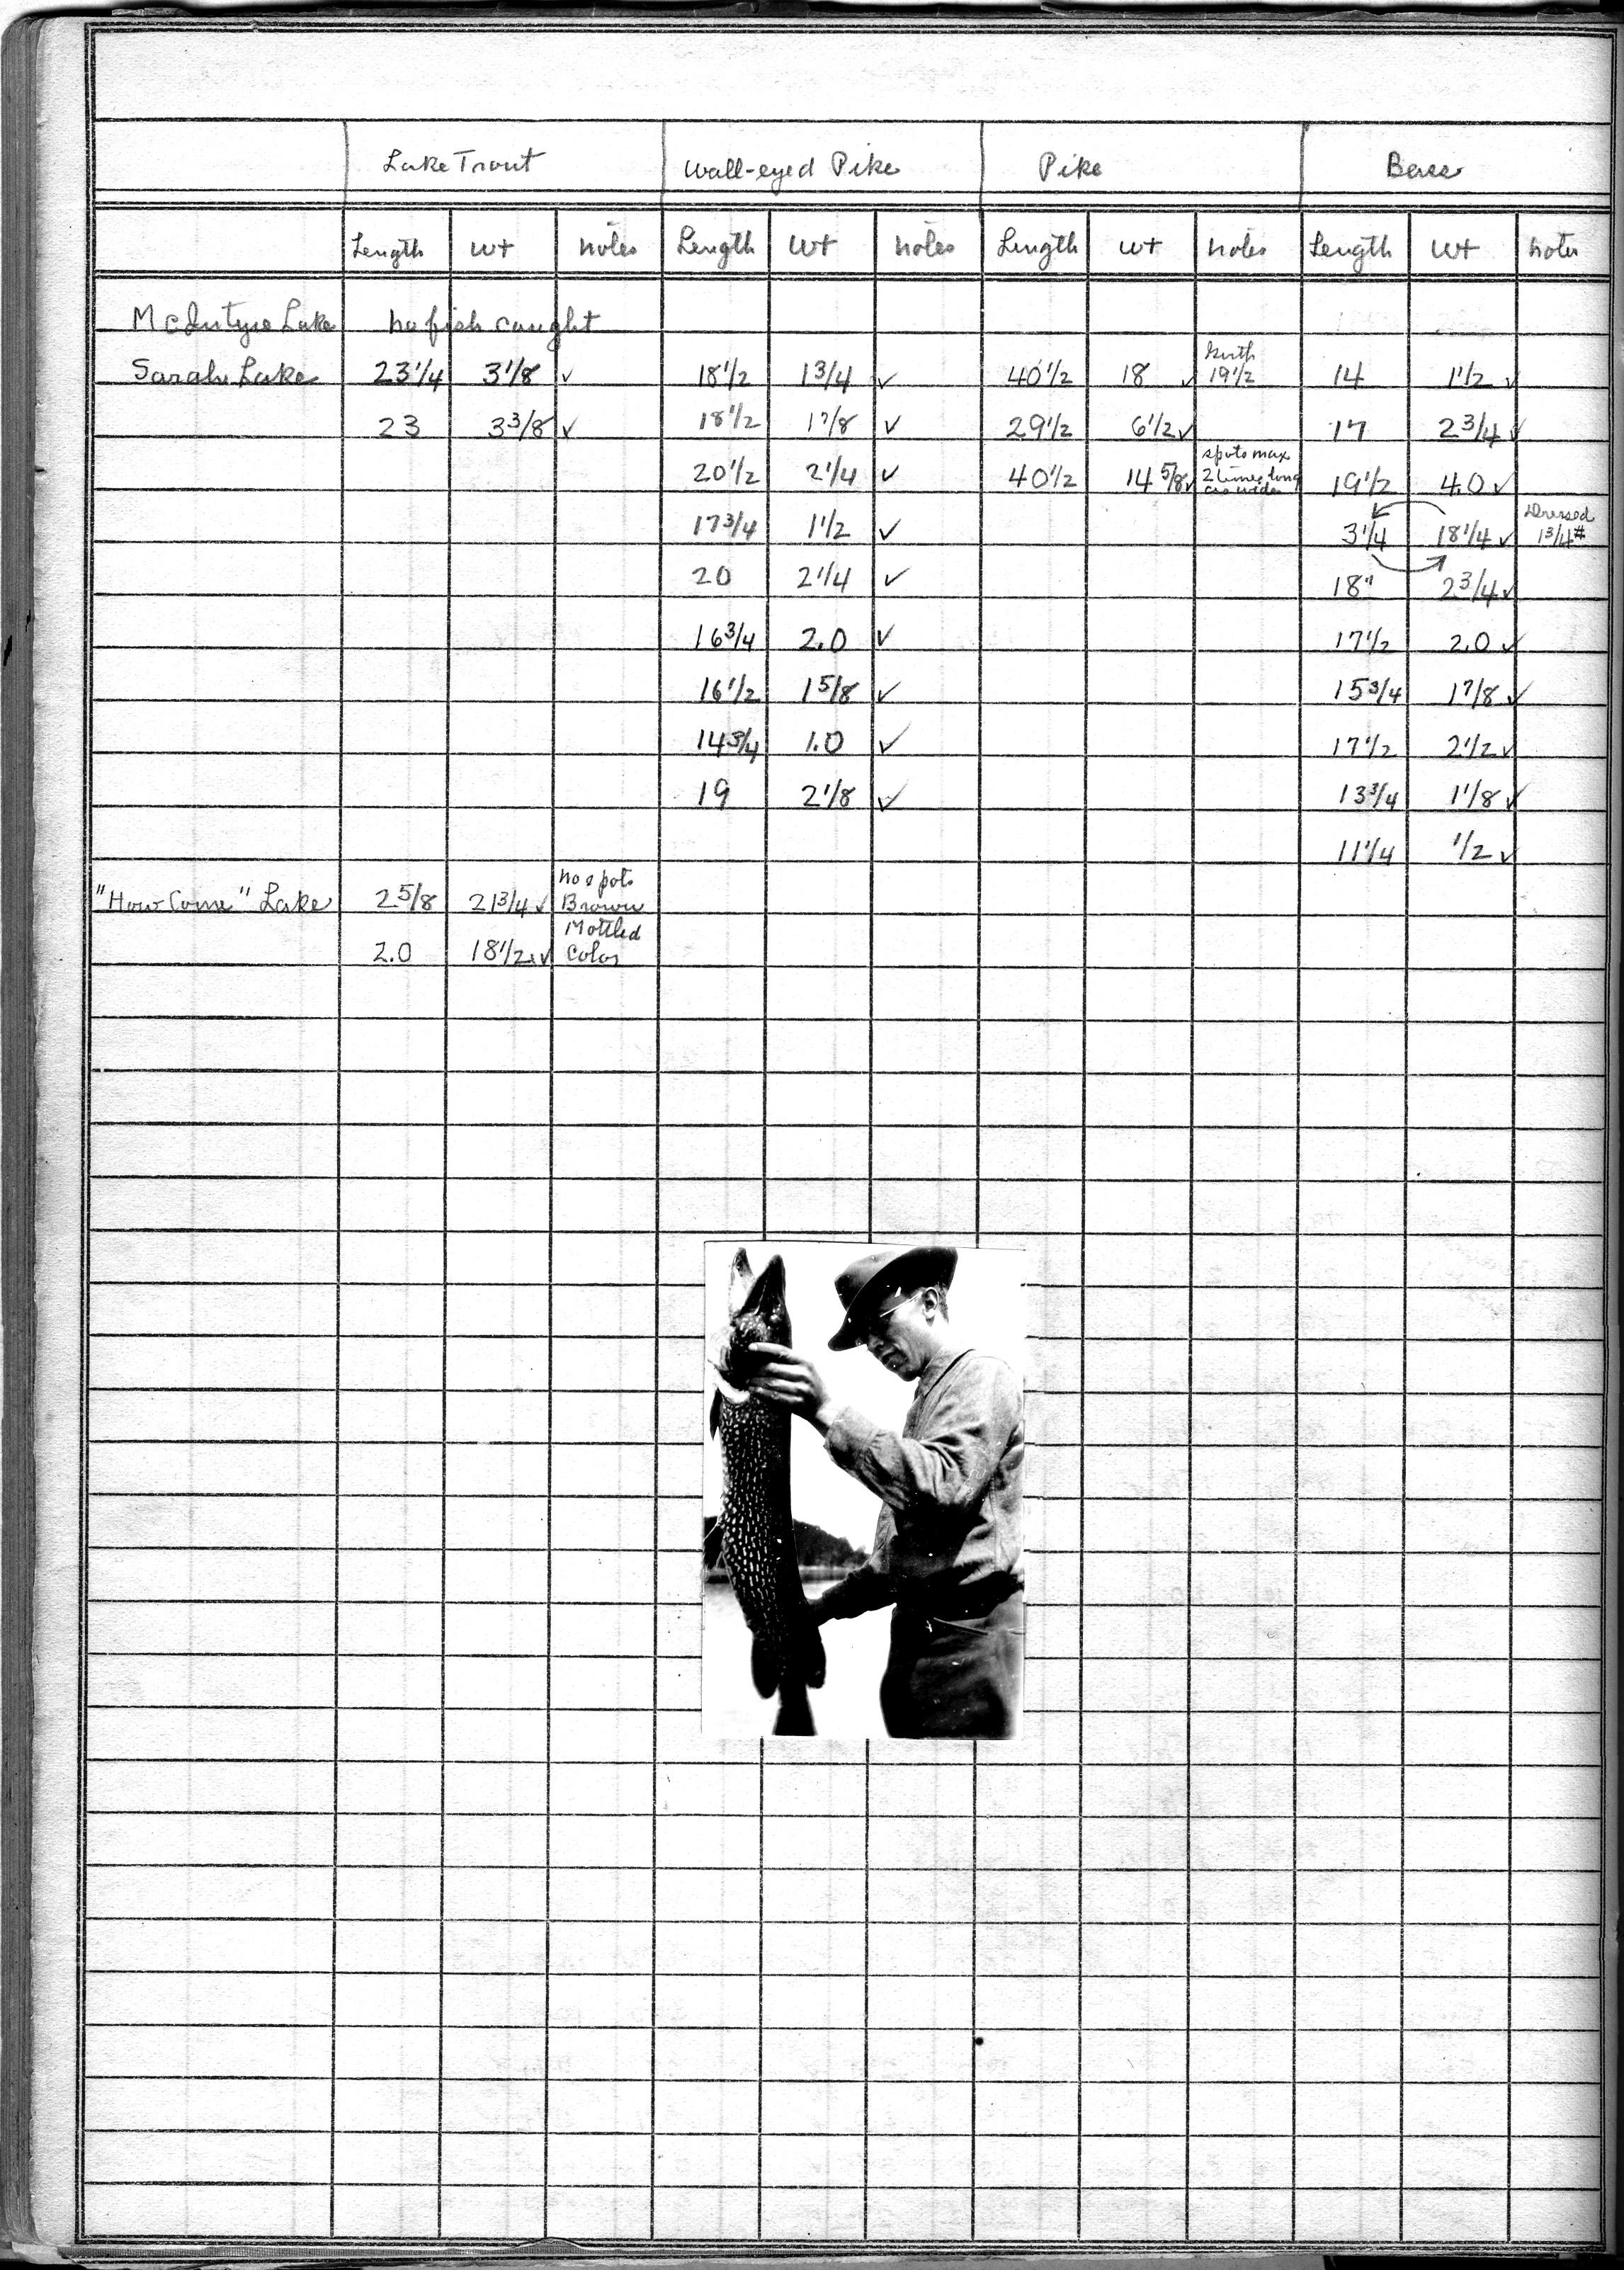 Lake Trout Wall-eyed Pike Pike Bass
Length Wt Notes Length Wt Notes Length Wt Notes Length Wt Notes
McIntyre Lake no fish caught
Sarah Lake 23 1/4 3 1/8 ✓ 18 1/2 1 3/4 ✓ 40 1/2 18 ✓ Girth 19 1/2 14 1 1/2 ✓
23 3 3/8 ✓ 18 1/2 1 7/8 ✓ 29 1/2 6 1/2 ✓ 17 2 3/4 ✓
20 1/2 2 1/4 ✓ 40 1/2 14 5/8 ✓ spots max 2 times long as wide 19 1/2 4.0 ✓
17 3/4 1 1/2 ✓ 3 1/4 18 1/4 ✓ Dressed 1 3/4#
20 2 1/4 ✓ 18" 2 3/4 ✓
16 3/4 2.0 ✓ 17 1/2 2.0 ✓
16 1/2 1 5/8 ✓ 15 3/4 1 7/8 ✓
14 3/4 1.0 ✓ 17 1/2 2 1/2 ✓
19 2 1/8 ✓ 13 3/4 1 1/8 ✓
11 1/4 1/2 ✓
"How Come" Lake 2 5/8 21 3/4 ✓ no spots Brown
2.0 18 1/2 ✓ Mottled Color